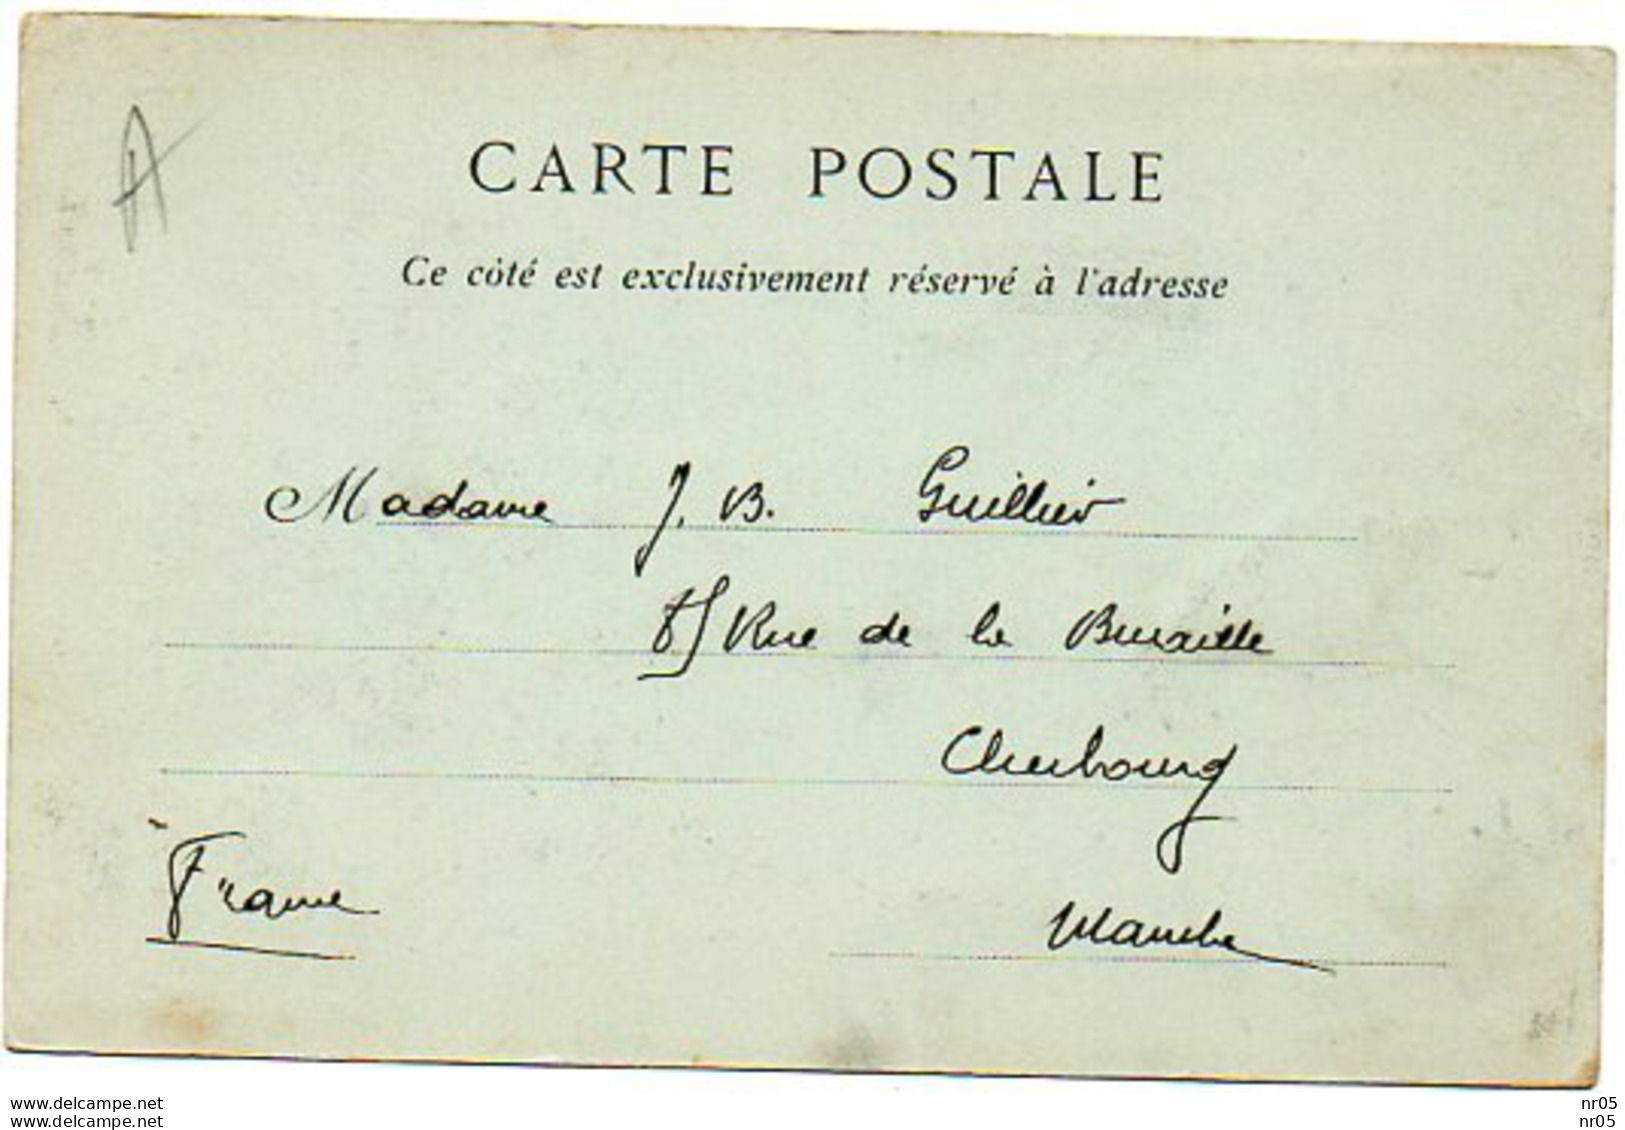 CARTE POSTALE
Ce côté est exclusivement réservé à l'adresse
Madame J. B. Guillier
Rue de la Bucaille
Cherbourg
France
Manche
www.delcampe.net nr05
www.delcampe.net nr05